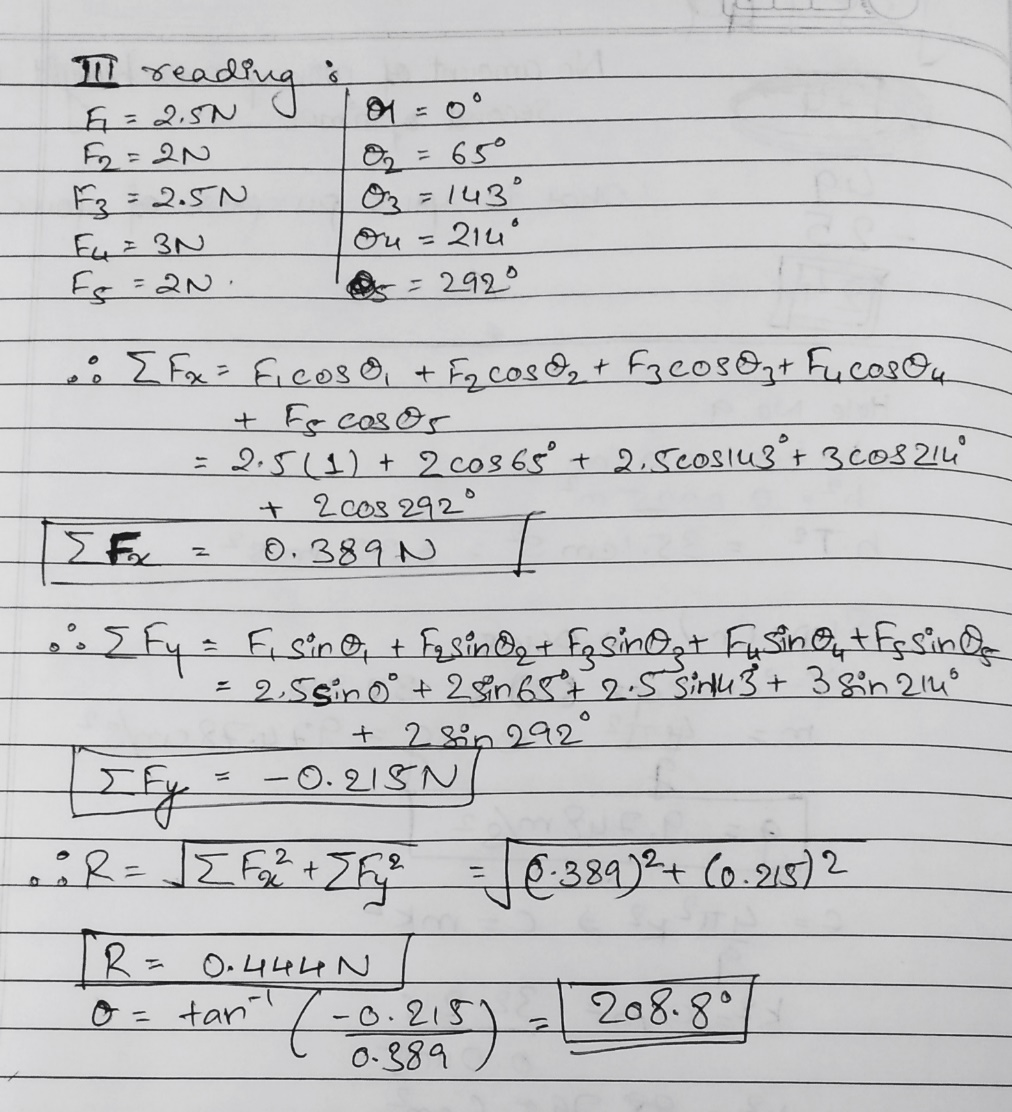 III reading :
F₁ = 2.5N | θ1 = 0°
F₂ = 2N | θ₂ = 65°
F₃ = 2.5N | θ₃ = 143°
F₄ = 3N | θ₄ = 214°
F₅ = 2N. | θ₅ = 292°
∴ ΣFx = F₁cosθ₁ + F₂cosθ₂ + F₃cosθ₃ + F₄cosθ₄
+ F₅ cosθ₅
= 2.5(1) + 2cos65° + 2.5cos143° + 3cos214°
+ 2cos292°
ΣFx = 0.389N
∴ ΣFy = F₁sinθ₁ + F₂sinθ₂ + F₃sinθ₃ + F₄sinθ₄ + F₅sinθ₅
= 2.5sin0° + 2sin65° + 2.5sin143° + 3sin214°
+ 2sin292°
ΣFy = -0.215N
∴ R = √ΣFx² + ΣFy² = √(0.389)² + (0.215)2
R = 0.444N
θ = tan⁻¹ (-0.215/0.389) = 208.8°